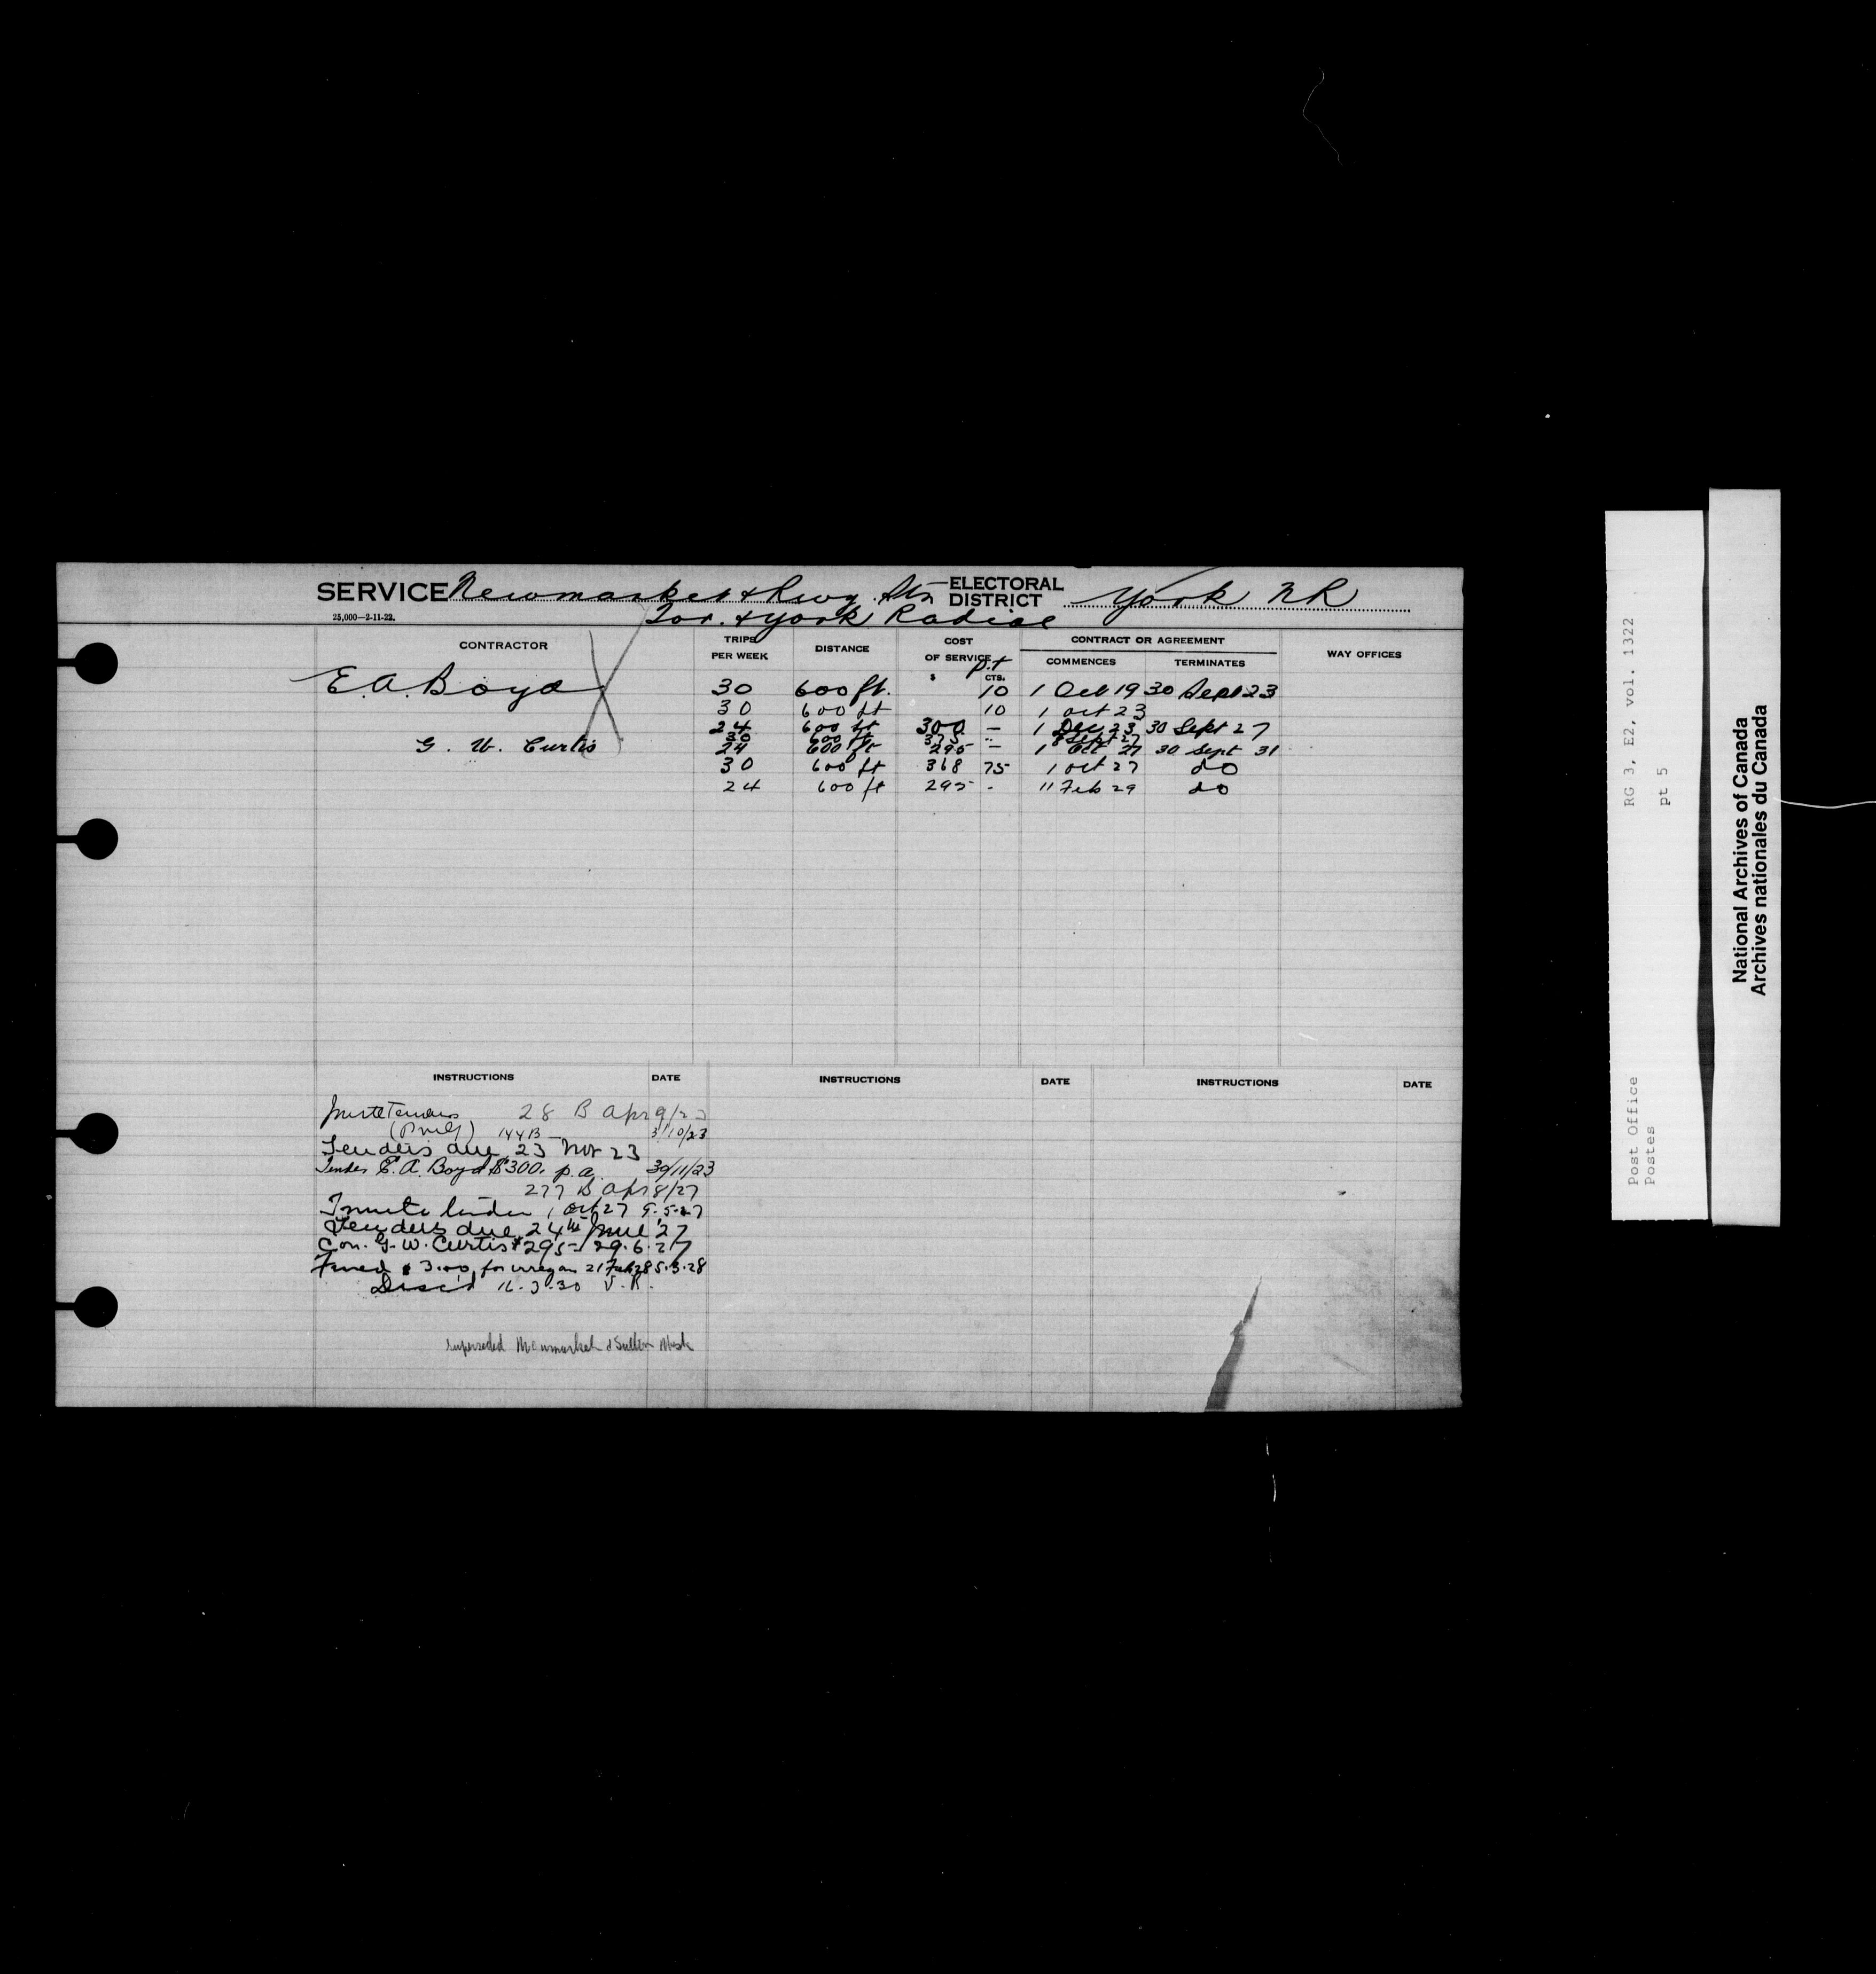 SERVICE Newmarket & Rwy. Stn ELECTORAL DISTRICT York NR
25,000—2-11-22. Tor. & York Radial
CONTRACTOR TRIPS PER WEEK DISTANCE COST OF SERVICE CONTRACT OR AGREEMENT WAY OFFICES
$ CTS. COMMENCES TERMINATES
p.t
E. A. Boyd 30 600 ft. 10 1 Oct 19 30 Sept 23
30 600 ft 10 1 Oct 23
24 600 ft 300 — 1 Dec 23 30 Sept 27
30 600 ft 375 " 8 Sept 27
G. W. Curtis 24 600 ft 295 — 1 Oct 27 30 Sept 31
30 600 ft 368 75 1 Oct 27 do
24 600 ft 295 - 11 Feb 29 do
INSTRUCTIONS DATE INSTRUCTIONS DATE INSTRUCTIONS DATE
Invite Tenders 28 B Apr 9/23
144 B — 3/10/23
Tenders due 23 Nov 23
Tender E. A. Boyd $300. p.a. 30/11/23
277 B Apr 8/27
Invite tender 1 Oct 27 9.5.27
Tenders due 24th June '27
Con. G. W. Curtis $295 — 29.6.27
Fined $3.00 for irregan 21 Feb 28 5.3.28
Disc'd 16.3.30 V.R.
Superseded Newmarket & Sutton West
RG 3, E2, vol. 1322
pt 5
Post Office
Postes
National Archives of Canada
Archives nationales du Canada